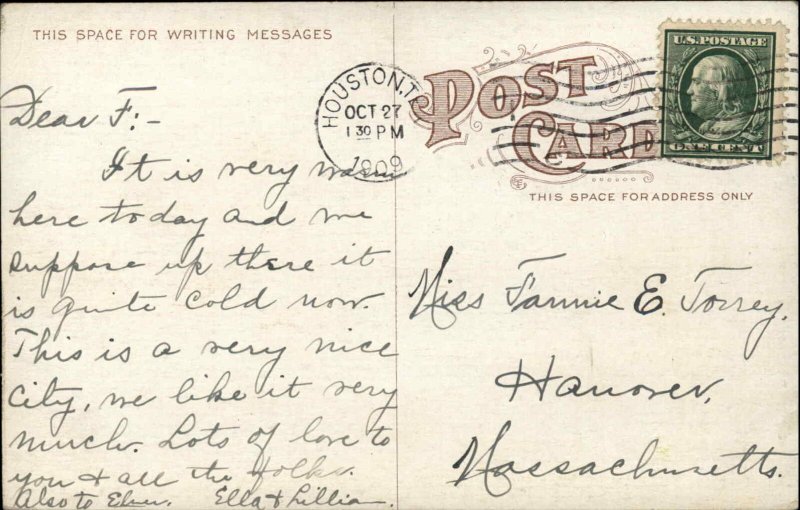 THIS SPACE FOR WRITING MESSAGES
Dear F:-
It is very warm
here today and we
suppose up there it
is quite cold now.
This is a very nice
city, we like it very
much. Lots of love to
you & all the folks.
Also to Elmer. Ella & Lillian.
HOUSTON, TEX
OCT 27
1 30 PM
1909
POST
CARD
U.S. POSTAGE
ONE CENT
THIS SPACE FOR ADDRESS ONLY
Miss Fannie E. Torrey,
Hanover,
Massachusetts.